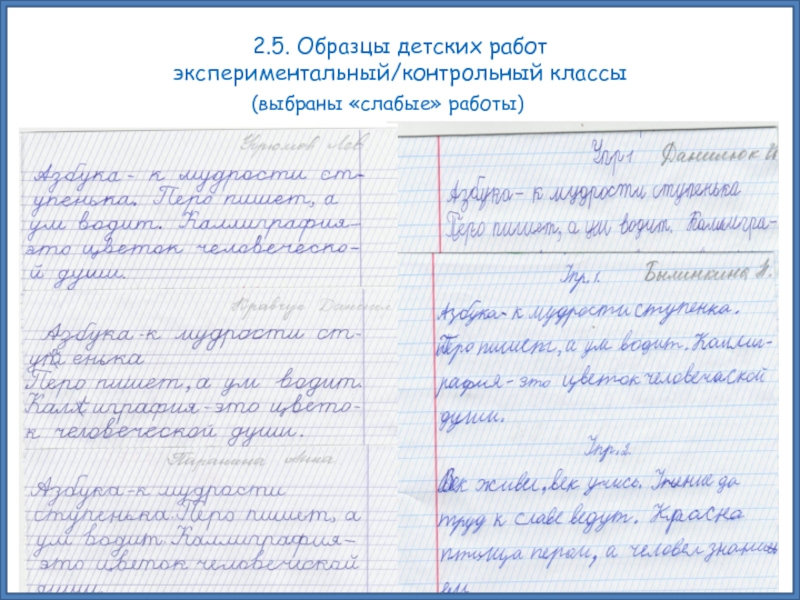 2.5. Образцы детских работ
экспериментальный/контрольный классы
(выбраны «слабые» работы)
Угрюмов Лев
Азбука - к мудрости ст-
упенька. Перо пишет, а
ум водит. Каллиграфия-
это цветок человеческо-
й души.
Кравчус Даниил
Азбука-к мудрости ст-
упенька
Перо пишет, а ум водит.
Каллиграфия-это цвето-
к человеческой души.
Анна
Азбука-к мудрости
ступенька Перо пишет, а
ум водит Каллиграфия-
это цветок человеческой
души.
Упр1 Данилюк И
Азбука - к мудрости ступенька
Перо пишет, а ум водит. Каллигра-
Упр.1. Былинкина М.
Азбука-к мудрости ступенка.
Перо пишет, а ум водит. Каллиг-
рафия-это цветок человечаской
души.
Упр.2
Век живи, век учись. Учение да
труд к славе ведут. Красна
птица пером, а человек
ем